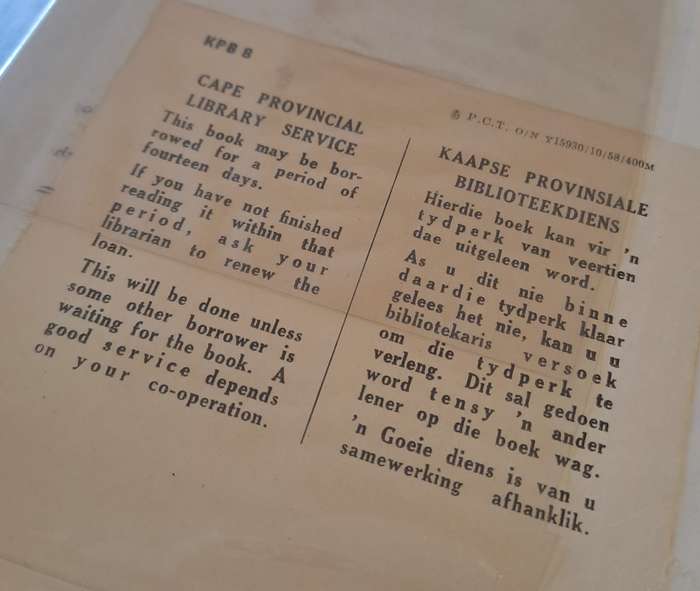 KPB B
CAPE PROVINCIAL
LIBRARY SERVICE
This book may be bor-
rowed for a period of
fourteen days.
If you have not finished
reading it within that
period, ask your
librarian to renew the
loan.
This will be done unless
some other borrower is
waiting for the book. A
good service depends
on your co-operation.
P.C.T. O/N Y15930/10/58/400M
KAAPSE PROVINSIALE
BIBLIOTEEKDIENS
Hierdie boek kan vir 'n
tydperk van veertien
dae uitgeleen word.
As u dit nie binne
daardie tydperk klaar
gelees het nie, kan u u
bibliotekaris versoek
om die tydperk te
verleng. Dit sal gedoen
word tensy 'n ander
lener op die boek wag.
'n Goeie diens is van u
samewerking afhanklik.